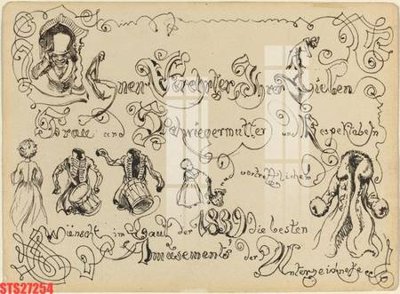 Einen Verehrter, Ihrer Lieben
Frau und Schwiegermutter und Respektabeln
vortrefflichen
Wünscht im Lauf der 1839 die besten
Amüsements der Unterzeichnete
STS27254